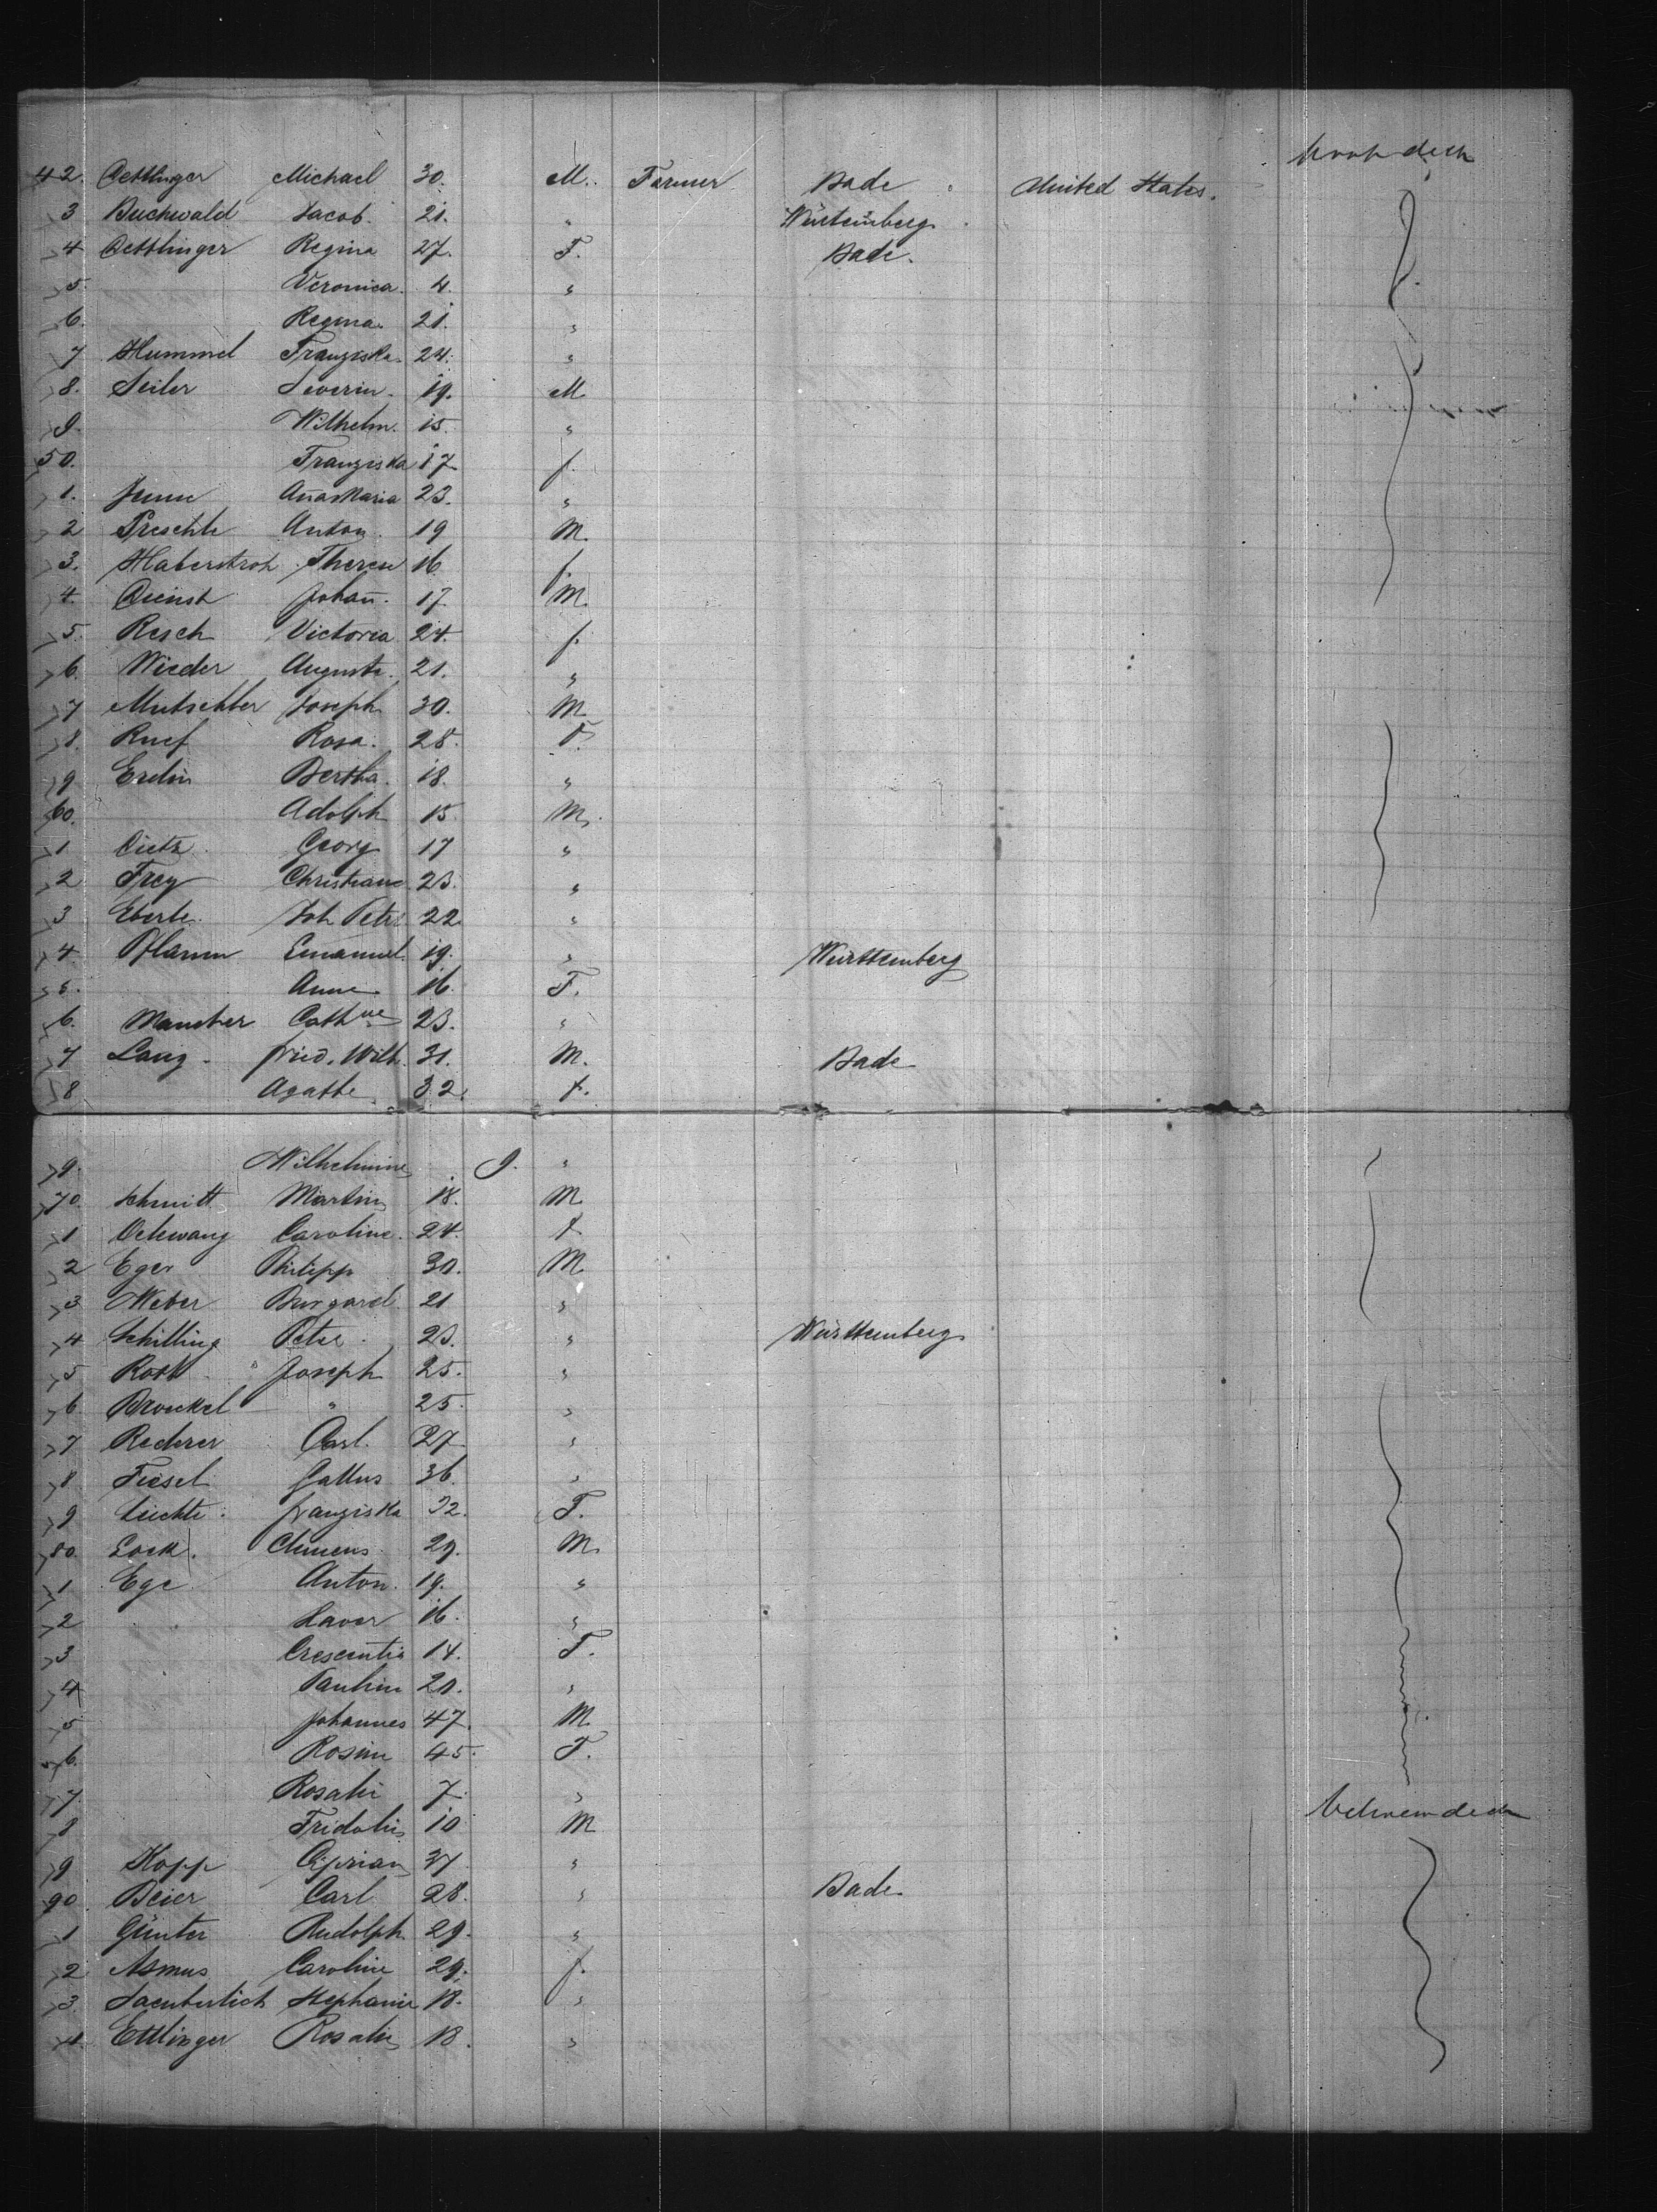 42. Oettlinger Michael 30. M. Farmer Bade United States.
3 Buchwald Jacob. 21. " Würtemberg
4 Oettlinger Regina 27. F. Bade.
5. Veronica. 4. "
6. Regina 21. "
7 Hummel Franziska 24. "
8. Seiler Severin. 19. M
9. Wilhelm. 15. "
50. Franziska 17 f.
1. Anna Maria 23. "
2 Anton. 19 M.
3. Haberstroh Therese 16 f.
4. Dienst Johann. 17 M.
5. Resch Victoria 24. f.
6. Wieder Auguste. 21. "
7 Mutschler Joseph 30. M
8. Ruef Rosa. 28. F.
9 Bertha 18. "
60. Adolph 15 M.
1 Dietz Georg 17 "
2 Frey Christiane 23. "
3 Eberle Joh Peter 22 "
4 Pflamm Emanuel. 19. " Württemberg
5. Anna 16. F.
6. Cathne 23. "
7 Lang. fried. Wilh. 31. M. Bade
8 Agathe. 32. f.
9. Wilhelmine 9. "
70. Schmitt Martin 18. M
1 Caroline. 24. f.
2 Eger Philipp 30. M
3 Weber Burgard 21 "
4 Schilling Peter. 23. " Württemberg
5 Joseph 25. "
6 Broeckel " 25. "
7 Rederer Carl. 27 "
8 Fiesel Gallus 36. "
9 Liechte. franziska 32. F.
80. Lock. Clemens 29. M
1 Ege Anton. 19. "
2 Xaver 16. "
3 Crescentia 14. F.
4 Paulina 20. "
5 Johannes 47. M
6. Rosina 45. F.
7. Rosalie 7. "
8 Fridolin 10 M
9 Kopp Ciprian 37 "
90. Beier Carl 28. " Bade
1 Günter Rudolph 29. "
2 Asmus Caroline 29. f.
3. Saeuberlich Stephanie 18. "
4. Ettlinger Rosalie 18. "